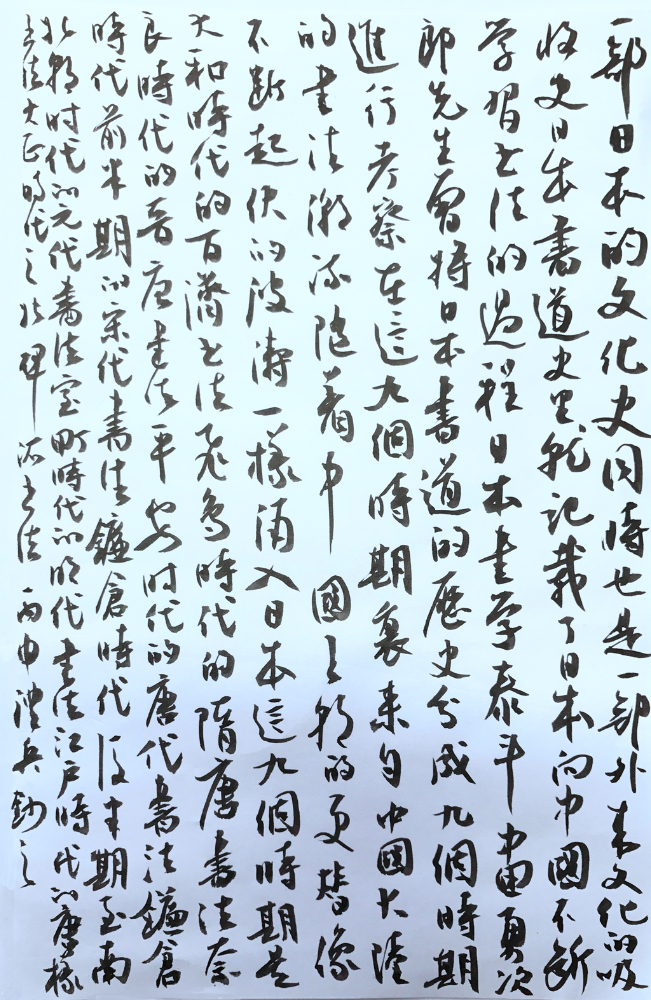 一部日本的文化史同時也是一部外来文化的吸
收史日本書道史里就記載了日本向中國不斷
学習书法的過程日本書学泰斗中田勇次
郎先生曾將日本書道的歷史分成九個時期
進行考察在這九個時期裏来自中國大陸
的書法潮流随着中國王朝的更替像
不断起伏的波濤一樣涌入日本這九個時期是
大和時代的百濟书法飛鳥時代的隋唐書法奈
良時代的晋唐書法平安时代的唐代書法鎌倉
時代前半期的宋代書法鎌倉時代後半期至南
北朝时代的元代書法室町時代的明代書法江戸時代的唐樣
书法大正時代之北碑派书法 丙申 兵鈔之